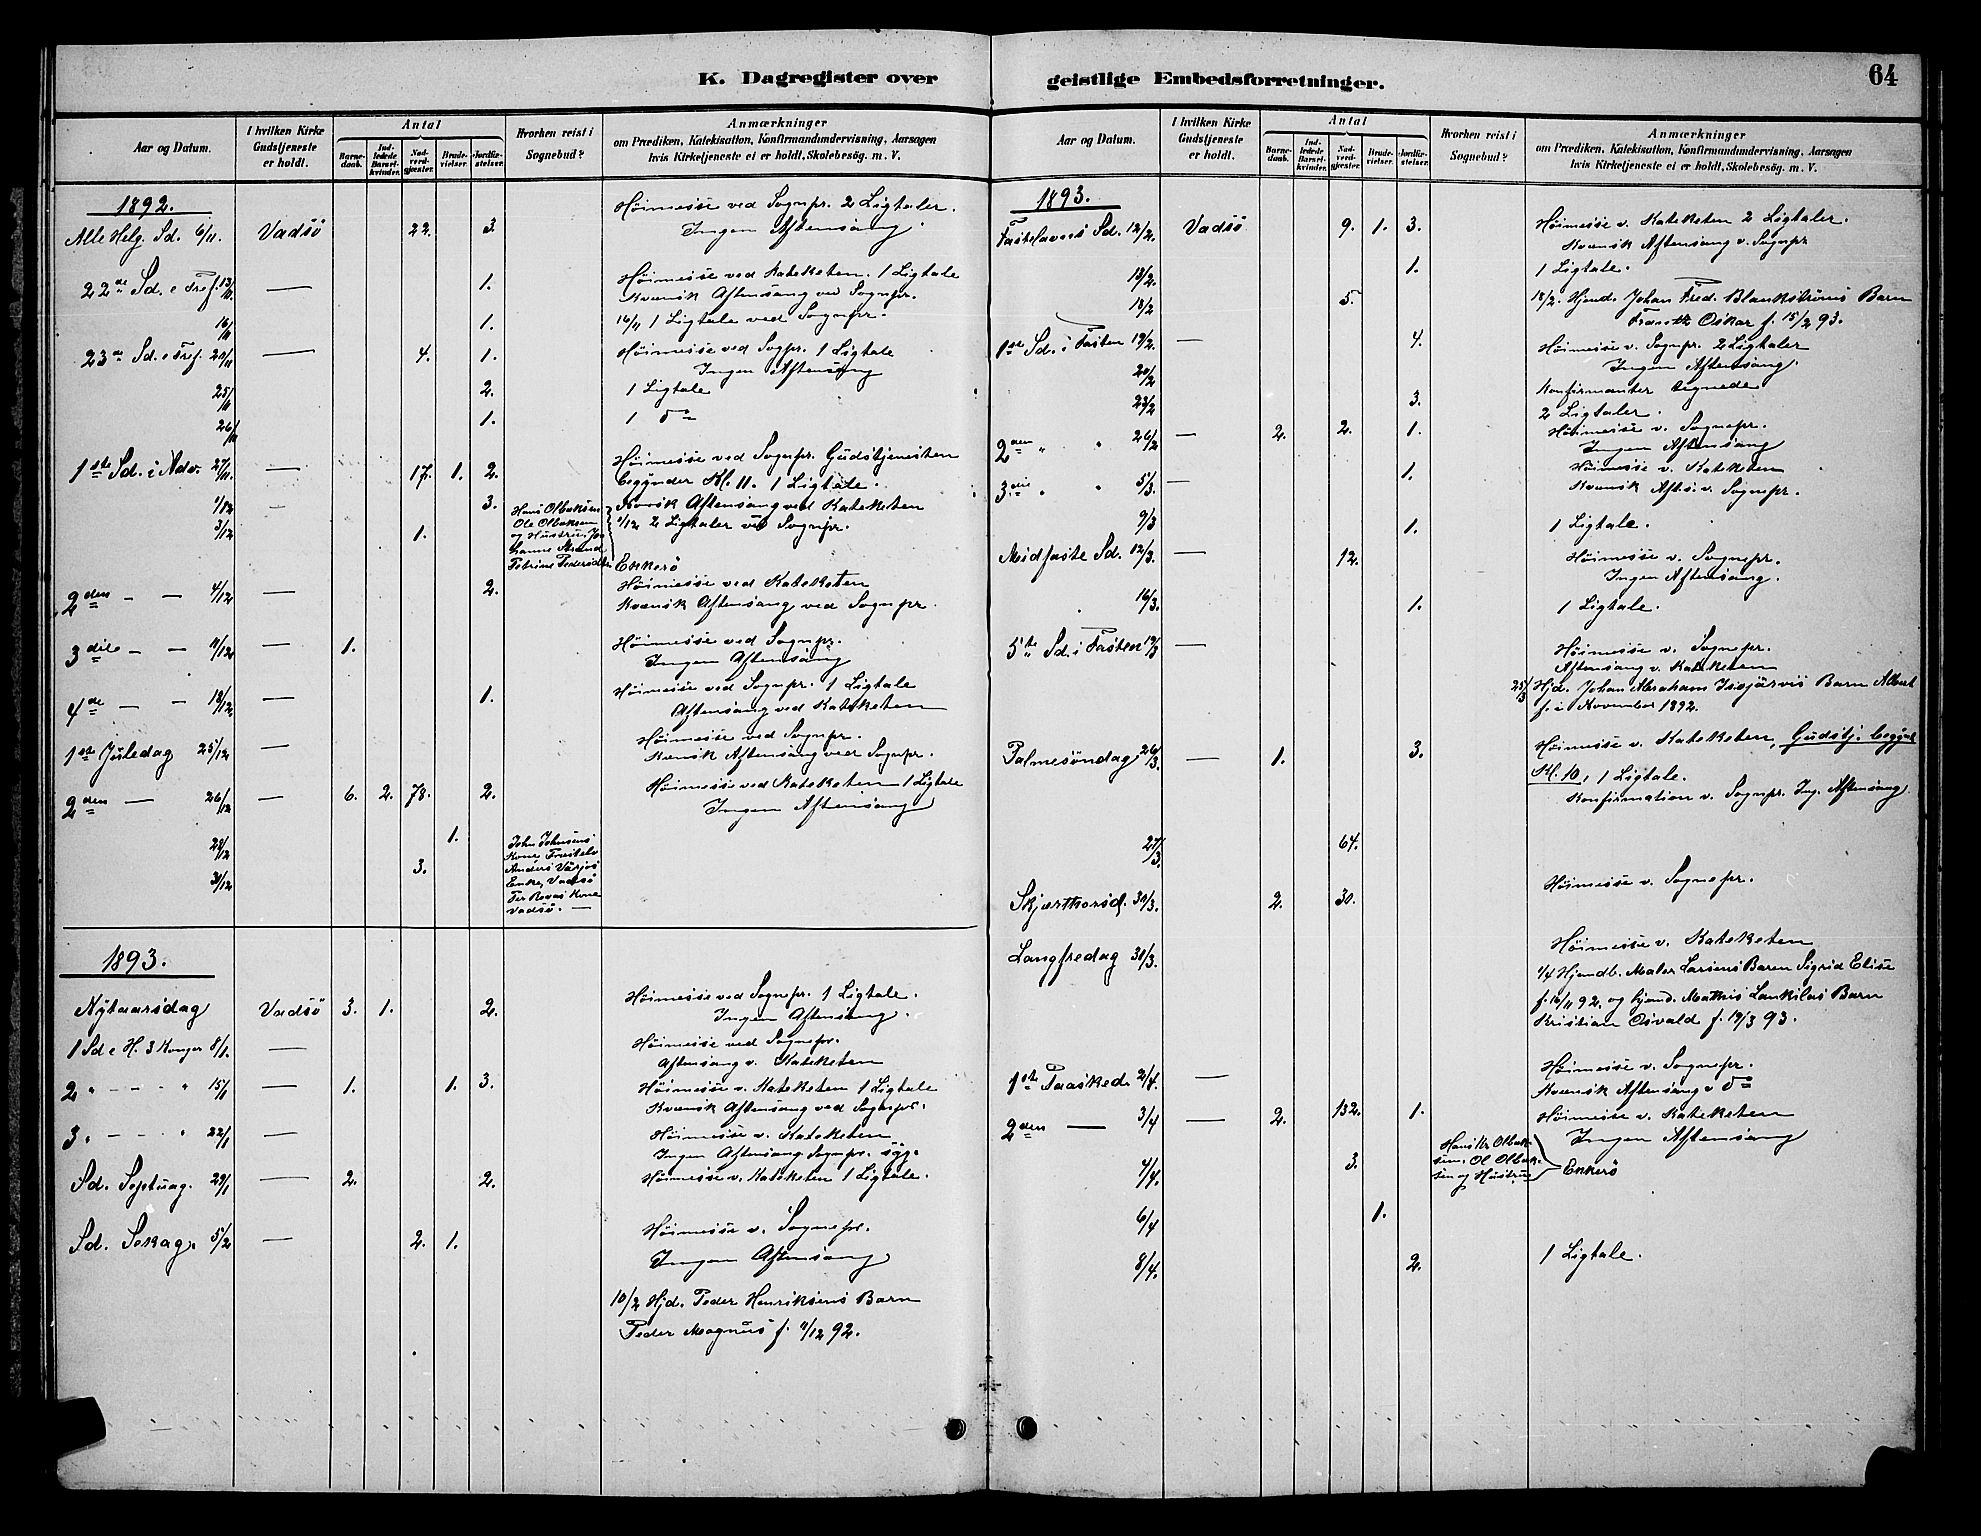 K. Dagregister over geistlige Embedsforretninger.
64
Aar og Datum.
I hvilken Kirke Gudstjeneste er holdt.
Antal
Barne-daab.
Ind-ledede Barsel-kvinder.
Nad-verd-gjester.
Brude-vielser.
Jordfæ-stelser.
Hvorhen reist i Sognebud?
Anmærkninger
om Prædiken, Katekisation, Konfirmandundervisning, Aarsagen
hvis Kirketjeneste ei er holdt, Skolebesøg. m. V.
1892.
Alle Helg. Sd. 6/11. Vadsö 22. 3. Höimesse ved Sognpr. 2 Ligtaler.
Ingen Aftensang.
22de Sd. e Tref. 13/11. — 1. Höimesse ved Kateketen. 1 Ligtale
Kvensk Aftensang ved Sognpr.
16/11 1. 16/11 1 Ligtale ved Sognpr.
23de Sd. e Tref. 20/11 — 4. 1. Höimesse ved Sogpr. 1 Ligtale
Ingen Aftensang
25/11 2. 1 Ligtale
26/11 1. 1 do
1ste Sd. i Adv. 27/11. — 17. 1. 2. Höimesse ved Sognpr. Gudstjenesten
begynder Kl. 11. 1 Ligtale.
1/12 — 3. Norsk Aftensang ved Kateketen
3/12 1. 1/12 2 Ligtaler ved Sognpr.
Hans Olbaksen
Ole Olbaksen
og Hustru, Jo
hanne Strand
Petrine Pedersdtr. Ekkerö
2den — — 4/12 — 2. Höimesse ved Kateketen
Kvensk Aftensang ved Sognpr.
3die — — 11/12 — 1. Höimesse ved Sognpr.
Ingen Aftensang
4de — — 18/12 — 1. Höimesse ved Sognpr. 1 Ligtale
Aftensang ved Kateketen
1ste Juledag 25/12 — Höimesse ved Sognpr.
Kvensk Aftensang ved Sognpr.
2den — 26/12 — 6. 2. 78. 2. Höimesse ved Kateketen 1 Ligtale
Ingen Aftensang
1.
3.
31/12
John Johnsens
Kone
Anders
Enke, Vadsö
Per Kone
Vadsö. —
1893.
Nytaarsdag Vadsö 3. 1. 2. Höimesse ved Sognpr. 1 Ligtale.
Ingen Aftensang.
1 Sd e H. 3 Konger 8/1. — Höimesse ved Sognepr.
Aftensang v. Kateketen
2 " - - - " 15/1 — 1. 1. 3. Höimesse v. Kateketen 1 Ligtale
Kvensk Aftensang ved Sognpr.
3. - - - " 22/1 — Höimesse v. Kateketen
Ingen Aftensang Sognpr. syg.
Sd. Septuag. 29/1 — 2. 2. Höimesse v. Kateketen 1 Ligtale.
Sd. Sexag. 5/2 — 2. 1. Höimesse v. Sognepr.
Ingen Aftensang
10/2 Hjd. Peder Henriksens Barn
Peder Magnus f. 92.
Aar og Datum.
I hvilken Kirke Gudstjeneste er holdt.
Antal
Barne-daab.
Ind-ledede Barsel-kvinder.
Nad-verd-gjester.
Brude-vielser.
Jordfæ-stelser.
Hvorhen reist i Sognebud?
Anmærkninger
om Prædiken, Katekisation, Konfirmandundervisning, Aarsagen
hvis Kirketjeneste ei er holdt, Skolebesøg. m. V.
1893.
Fastelavens Sd. 12/2. Vadsö 9. 1. 3. Höimesse v. Kateketen 2 Ligtaler.
Kvensk Aftensang v. Sognpr
13/2. 1. 1 Ligtale.
18/2 5. 18/2. Hjmd. Johan Fred. Blankströms Barn
Oskar f. 15/2 93.
1ste Sd. i Fasten 19/2. — 4. Höimesse v. Sognpr. 2 Ligtaler
Ingen Aftensang.
20/2 Konfirmanter tegnede
23/2 3. 2 Ligtaler.
2den " " 26/2 — 2. 2. 1. Höimesse v. Sognepr.
Ingen Aftensang
3die " " 5/3. — 1. Höimesse v. Kateketen
Kvensk Aftss. v. Sognepr.
9/3 1. 1 Ligtale.
Midfaste Sd. 12/3. — 12. Höimesse v. Sognepr.
Ingen Aftensang.
16/3. 1. 1 Ligtale.
5te Sd. i Fasten 19/3 — Höimesse v. Sognepr.
Aftensang v. Kateketen
25/3 Hjd. Johan Abraham Isojärvis Barn Albert
f. i November 1892.
Palmesöndag 26/3. — 1. 3. Höimesse v. Kateketen, Gudstj. begynd
Kl. 10, 1 Ligtale.
Konfirmation v. Sognpr. Ing. Aftensang
27/3. 64.
Skjærthorsd. 30/3. 2. 30. Höimesse v. Sognepr.
Langfredag 31/3. Höimesse v. Kateketen
1/4 Hjemdb. Maler Larsens Barn Sigrid Elise
f. 16/11 92, og hjmd. Mathis Lankilas Barn
Kristian Osvald f. 19/3 93.
1ste Paasked. 2/4. — Höimesse v. Sognepr.
Kvensk Aftensang v do
2den — 3/4 — 2. 132. 1. Höimesse v. Kateketen
Ingen Aftensang
4/4. 3. Hans Kr. Olbak-
sen. Ol Olbak-
sen og Hustru Ekkerö
6/4 1.
8/4. 2. 1 Ligtale.